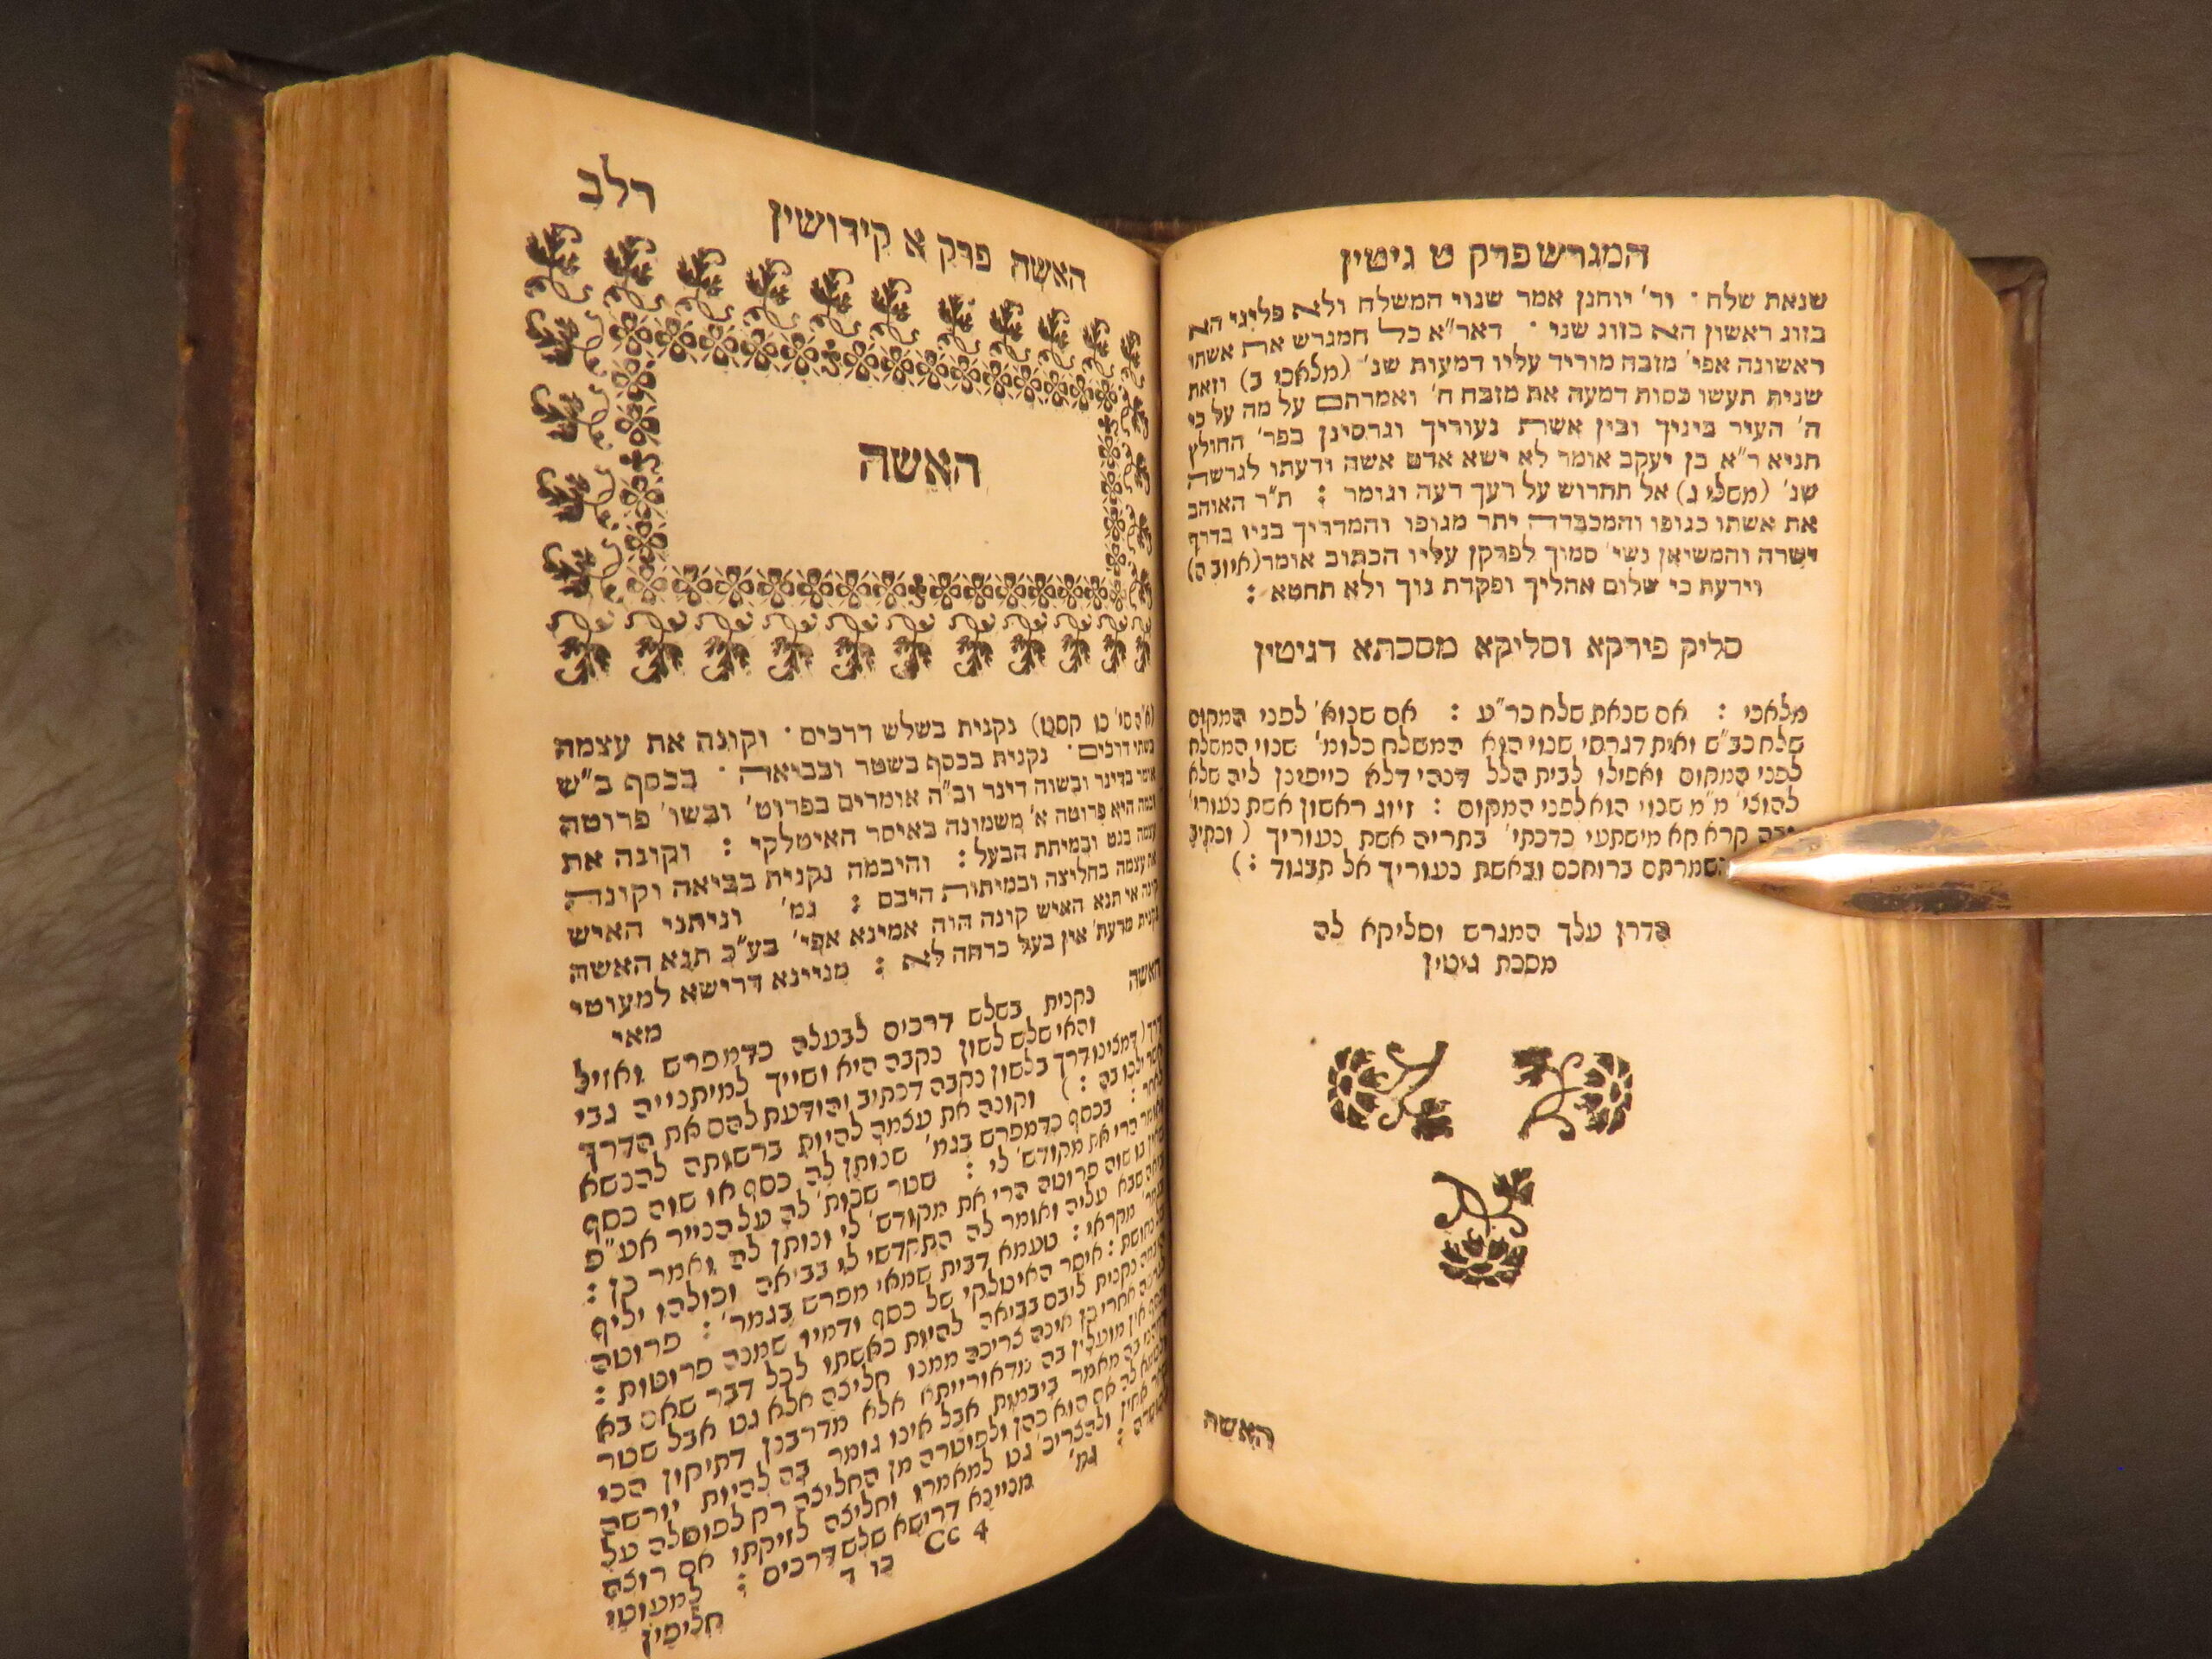 המגרש פרק ט גיטין
שנאת שלח · ור' יוחנן אמר שנוי המשלח ולא פליגי הא
בזוג ראשון הא בזוג שני · דאר"א כל המגרש את אשתו
ראשונה אפי' מזבח מוריד עליו דמעות שנ' (מלאכי ב) וזאת
שנית תעשו כסות דמעה את מזבח ה' ואמרתם על מה על כי
ה' העיר ביניך ובין אשת נעוריך וגרסינן בפר' החולץ
תניא ר"א בן יעקב אומר לא ישא אדם אשה ודעתו לגרשה
שנ' (משלי ג) אל תחרוש על רעך רעה וגומר : ת"ר האוהב
את אשתו כגופו והמכבדה יתר מגופו והמדריך בניו בדרך
ישרה והמשיאן נשי' סמוך לפרקן עליו הכתוב אומר (איוב ה)
וידעת כי שלום אהליך ופקדת נוך ולא תחטא :
סליק פירקא וסליקא מסכתא דגיטין
מלאכי : אם שנאת שלח כר"ע : אם שנוא' לפני המקום
שלח כב"ש ואית דגרסי שנוי הוא המשלח כלומ' שנוי המשלח
לפני המקום ואפילו לבית הלל דנהי דלא כייפינן ליה שלא
להוצי' מ"מ שנוי הוא לפני המקום : זיוג ראשון אשת נעורי'
קרא קא מישתעי כדכתי' בתריה אשת נעוריך (וכתיב
ונשמרתם ברוחכם ובאשת נעוריך אל תבגוד :)
הדרן עלך המגרש וסליקא לה
מסכת גיטין
האשה
האשה פרק א קידושין
רלב
האשה
נקנית בשלש דרכים · וקונה את עצמה
בשתי דרכים · נקנית בכסף בשטר ובביאה · בכסף ב"ש
אומ' בדינר ובשוה דינר וב"ה אומרים בפרוט' ובשו' פרוטה
וכמה היא פרוטה א' משמונה באיסר האיטלקי : וקונה את
עצמה בגט ובמיתת הבעל : והיבמה נקנית בביאה וקונה
את עצמה בחליצה ובמיתת היבם : גמ' וניתני האיש
קונה אי תנא האיש קונה הוה אמינא אפי' בע"כ תנא האשה
נקנית מדעת' אין בעל כרחה לא : מניינא דרישא למעוטי
מאי
האשה נקנית בשלש דרכים לבעלה כדמפרש ואזיל
והאי שלש לשון נקבה היא ושייך למיתנייה גבי
דרך (דמצינו דרך בלשון נקבה דכתיב והודעת להם את הדרך
אשר ילכו בה :) וקונה את עצמה להיות ברשותה להנשא
לאחר : בכסף כדמפרש בגמ' שנותן לה כסף או שוה כסף
ואומר הרי את מקודש' לי : שטר שכות' לה על הנייר אע"פ
שאין בו שוה פרוטה הרי את מקודש' לי ונותן לה ואמר כן :
שבא עליה ואומר לה התקדשי לי בביאה וכולהו יליף
מקראי : טעמא דבית שמאי מפרש בגמר' : פרוטה
נחושת : איסר האיטלקי של כסף ודמיו שמנה פרוטות :
נקנית ליבם בביאה להיות כאשתו לכל דבר שאם בא
אחרי כן אינה צריכה ממנו חליצה אלא גט אבל שטר
אין מועלין בה מדאורייתא אלא מדרבנן דתיקון הכי
מאמר ביבמות אבל אינו גומר בה להיות יורשה
אם הוא כהן ולפוטרה מן החליצה רק לפוסלה על
ולהצריכ' גט למאמרו וחליצה לזיקתו אם רוצה
גמ' מניינא דרישא שלש דרכים : למעוטי
Cc 4 כו ד חליפין